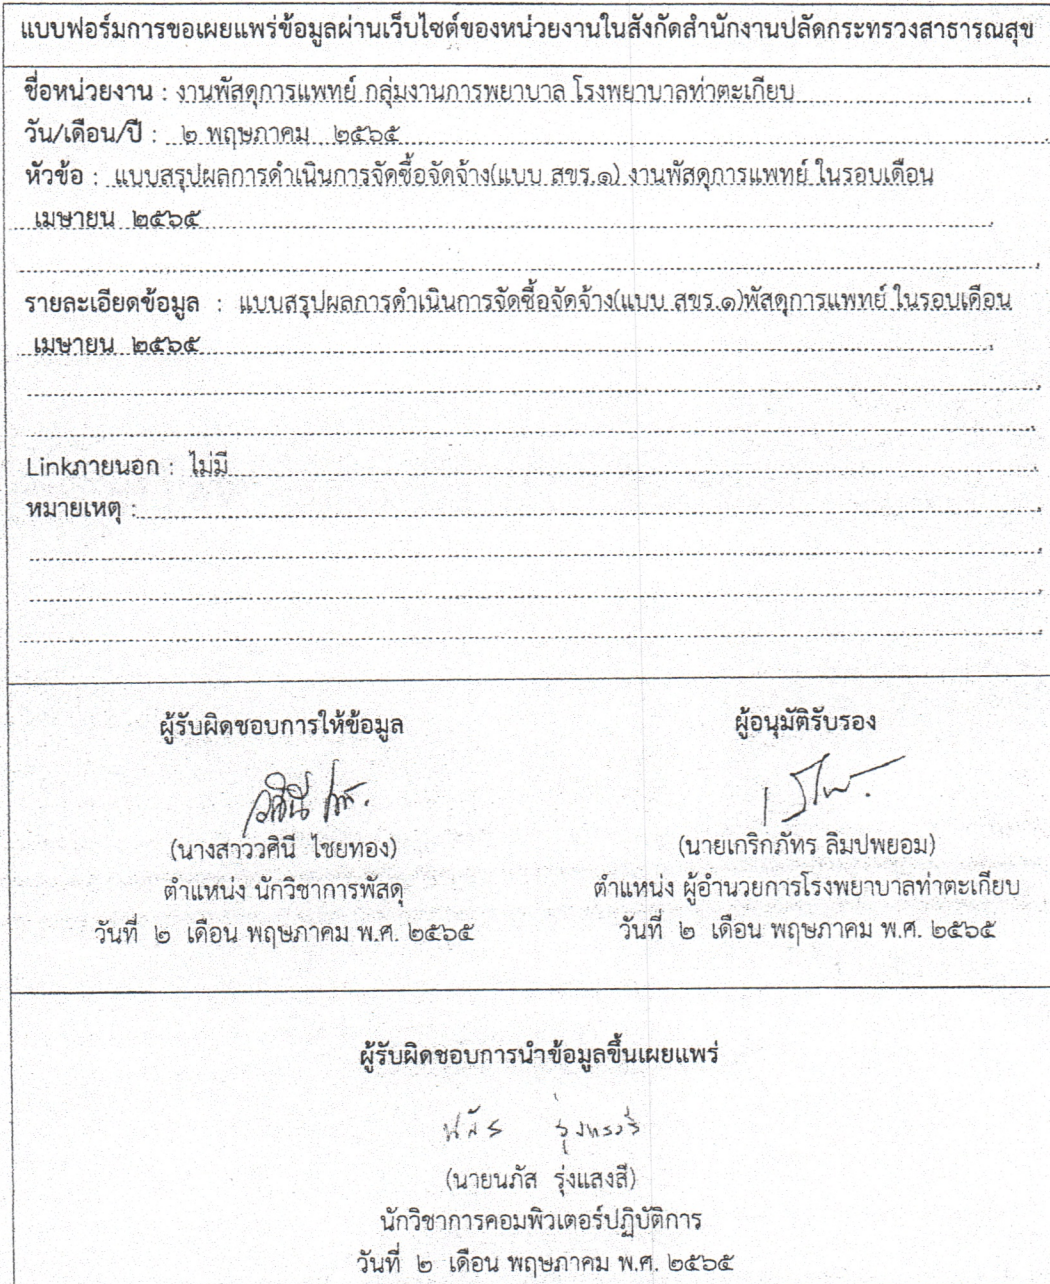 แบบฟอร์มการขอเผยแพร่ข้อมูลผ่านเว็บไซต์ของหน่วยงานในสังกัดสำนักงานปลัดกระทรวงสาธารณสุข
ชื่อหน่วยงาน : งานพัสดุการแพทย์ กลุ่มงานการพยาบาล โรงพยาบาลท่าตะเกียบ
วัน/เดือน/ปี : ๒ พฤษภาคม ๒๕๖๕
หัวข้อ : แบบสรุปผลการดำเนินการจัดซื้อจัดจ้าง(แบบ สขร.๑) งานพัสดุการแพทย์ ในรอบเดือน
เมษายน ๒๕๖๕
รายละเอียดข้อมูล : แบบสรุปผลการดำเนินการจัดซื้อจัดจ้าง(แบบ สขร.๑)พัสดุการแพทย์ ในรอบเดือน
เมษายน ๒๕๖๕
Linkภายนอก : ไม่มี
หมายเหตุ :
ผู้รับผิดชอบการให้ข้อมูล
(นางสาววศินี ไชยทอง)
ตำแหน่ง นักวิชาการพัสดุ
วันที่ ๒ เดือน พฤษภาคม พ.ศ. ๒๕๖๕
ผู้อนุมัติรับรอง
(นายเกริกภัทร ลิมปพยอม)
ตำแหน่ง ผู้อำนวยการโรงพยาบาลท่าตะเกียบ
วันที่ ๒ เดือน พฤษภาคม พ.ศ. ๒๕๖๕
ผู้รับผิดชอบการนำข้อมูลขึ้นเผยแพร่
(นายนภัส รุ่งแสงสี)
นักวิชาการคอมพิวเตอร์ปฏิบัติการ
วันที่ ๒ เดือน พฤษภาคม พ.ศ. ๒๕๖๕